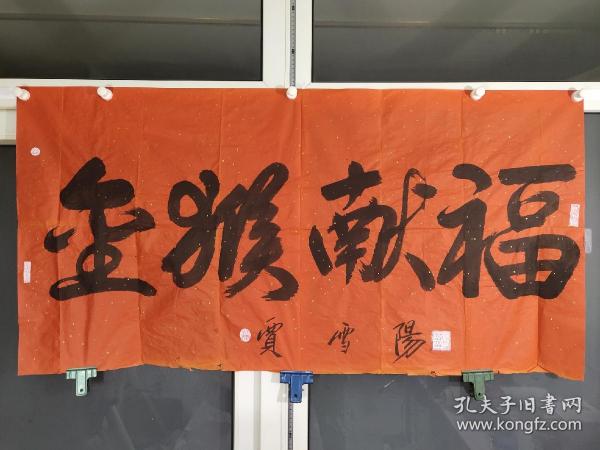 金猴献福
賈雪陽
孔夫子旧書网
www.kongfz.com